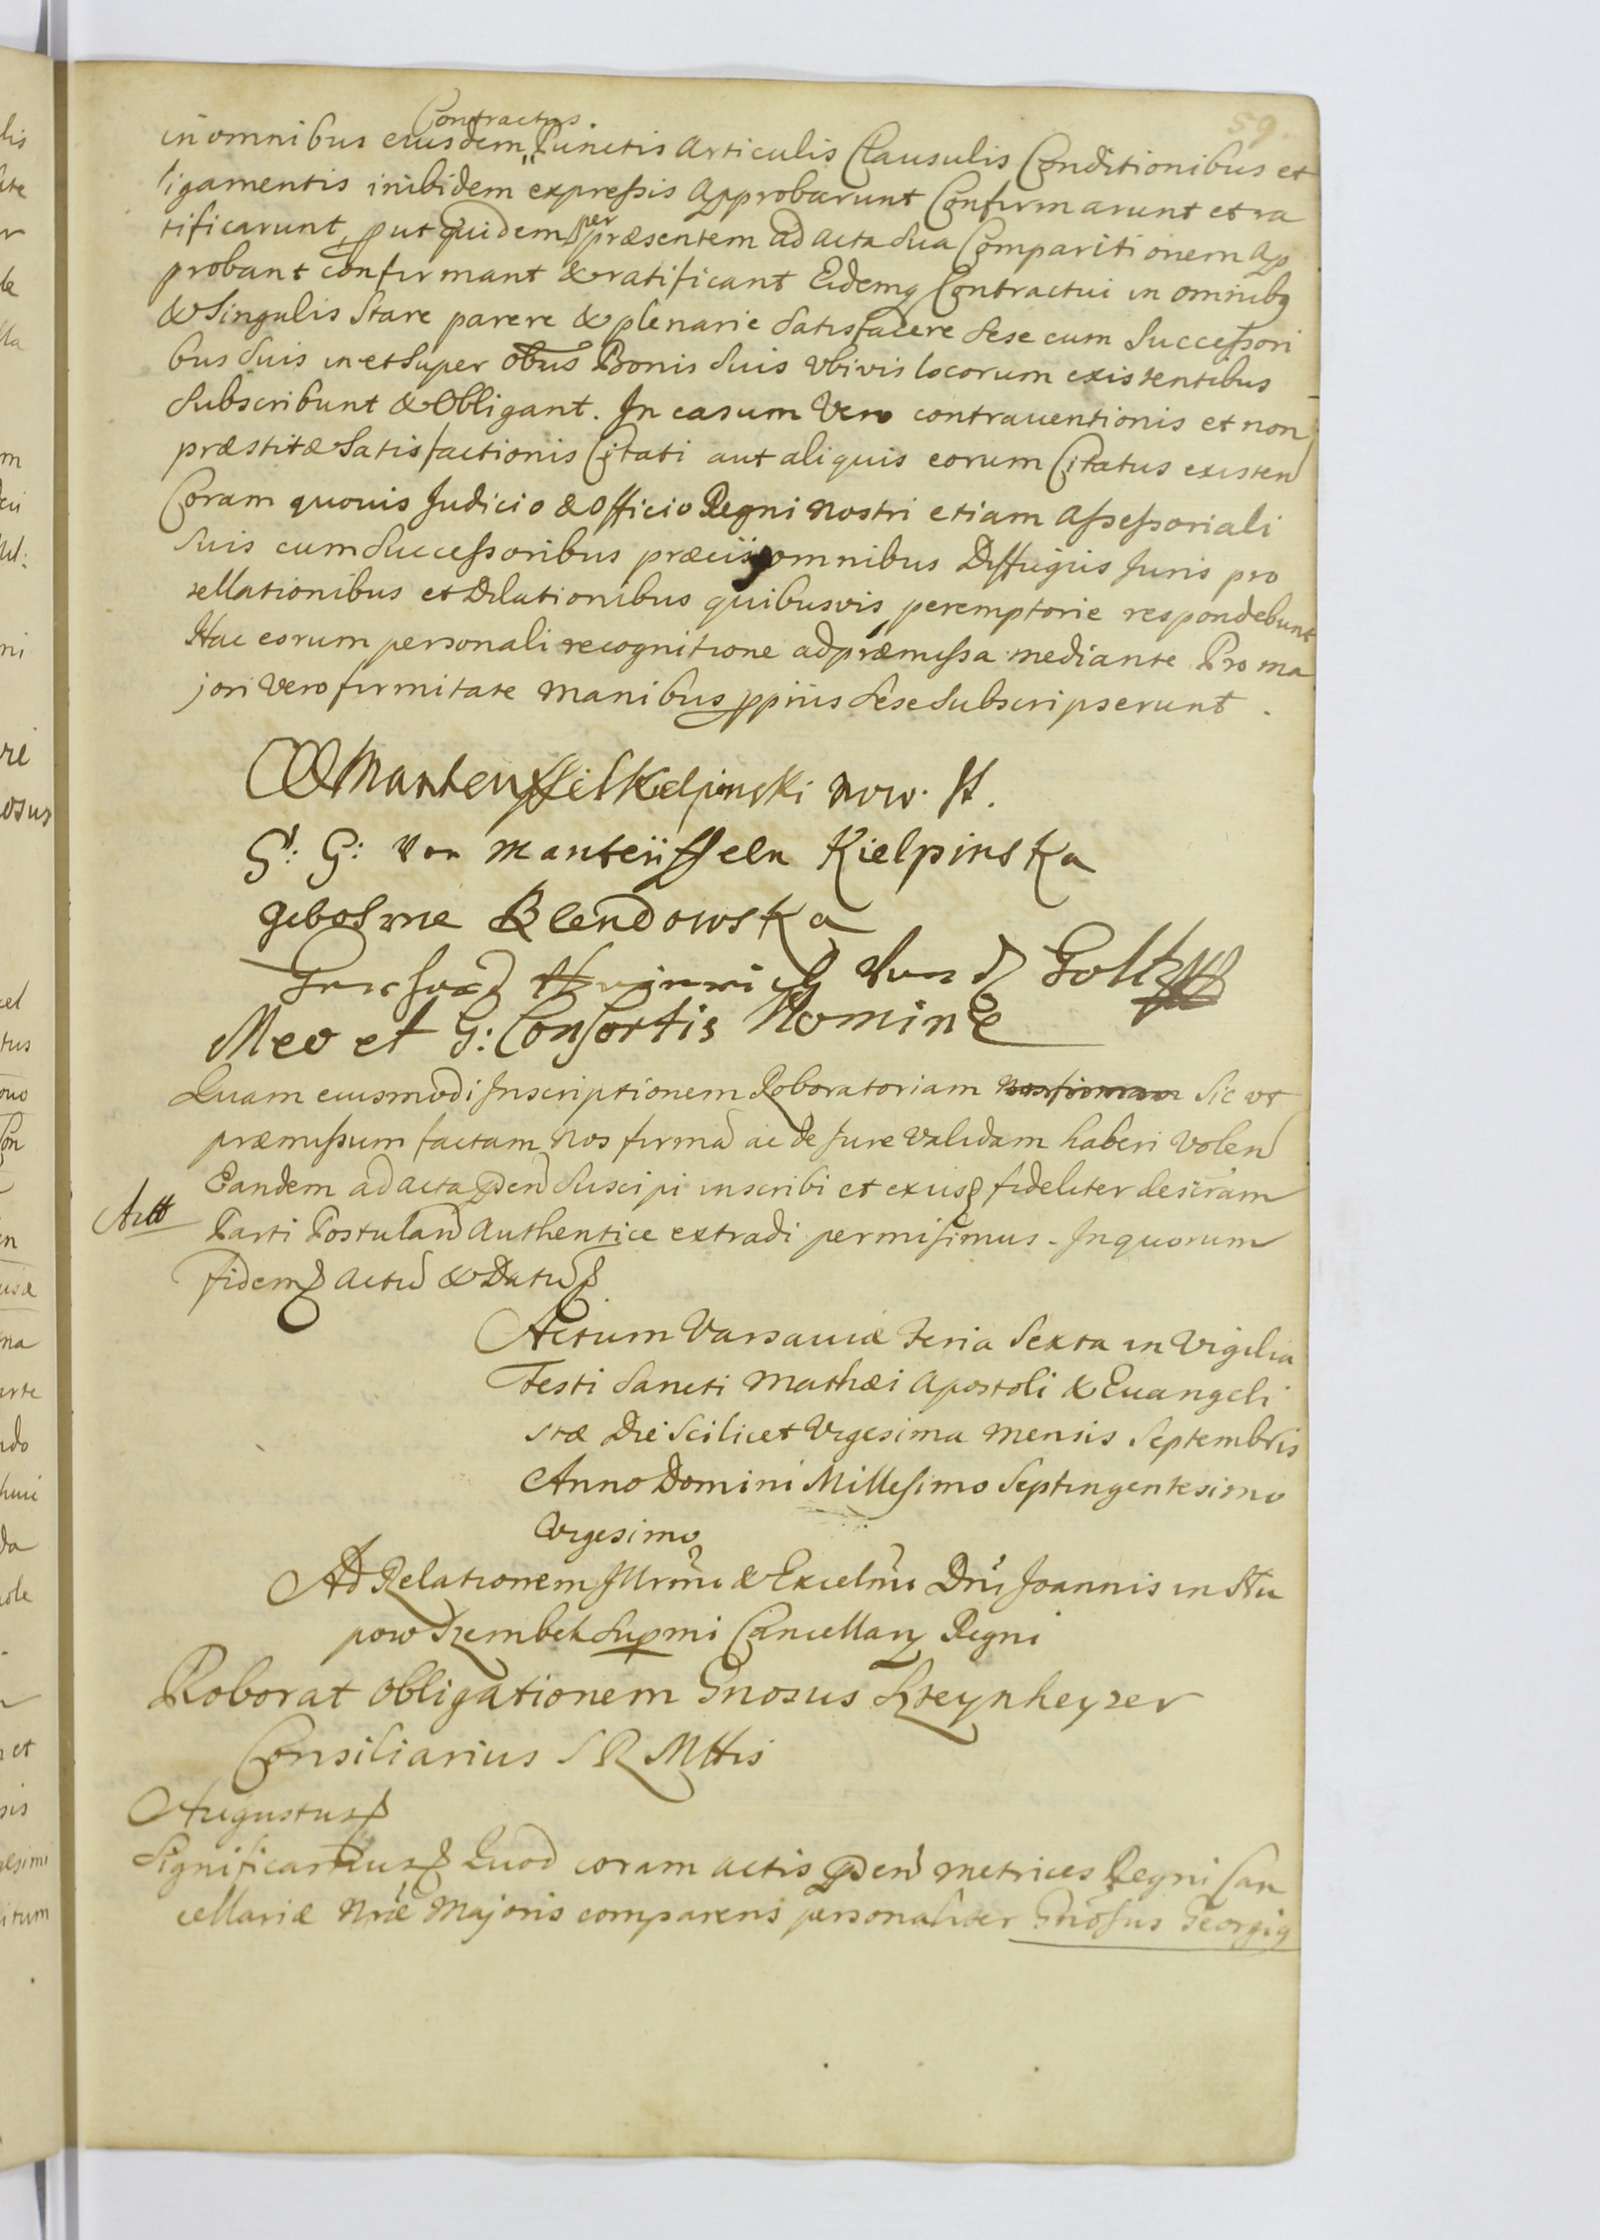 59.
Contractus
in omnibus eiusdem Punctis Articulis Clausulis Conditionibus et
ligamentis inibidem expressis Approbarunt Confirmarunt et ra
tificarunt, prut quidem per præsentem ad acta sua Comparitionem Ap
probant confirmant & ratificant Eidemq Contractui in omnibq
& Singulis Stare parere & plenarie Satisfacere sese cum Successori
bus suis in et super obus Bonis suis vbivis locorum existentibus
Subscribunt & Obligant. In casum Vero contrauentionis et non
præstitæ Satisfactionis Citati aut aliquis eorum Citatus existen
Coram quouis Judicio & Officio Regni nostri etiam Assessoriali
Suis cum Successoribus præciis omnibus Diffugiis Juris pro
tellationibus et Dilationibus quibusvis peremptorie respondebunt
Hac eorum personali recognitione ad præmissa mediante Pro ma
jori Vero firmitate manibus ppiis sese subscripserunt.
Manteuffel Kielpinski now. st.
G: von Manteüffeln Kielpinska
gebohrne Blendowska
Heinrich von d Goltz
Meo et G: Consortis Nomine
Quam eiusmodi Inscriptionem Roboratoriam Sic vt
præmissum factam nos firma ac de Jure Validam haberi Volen
Eandem ad acta pden Suscipi inscribi et exiisq fideliter descriam
Parti Postulan Authentice extradi permisimus. In quorum
fidem Actu & Datu
Actum Varsauiæ Feria Sexta in Vigilia
Festi Sancti Mathæi Apostoli & Euangeli
stæ Die Scilicet Vigesima mensis Septembris
Anno Domini Millesimo Septingentesimo
Vigesimo
Ad Relationem Illrmi & Excelmi Dni Joannis in Slu
pow Szembek Supmi Cancellarÿ Regni
Roborat obligationem Gnosus Steynheyser
Consiliarius S R Mttis
Augustus
Significamus Quod coram actis pden metrices Regni Can
cellariæ Nræ Majoris comparens personaliter Gnosus Georgiq